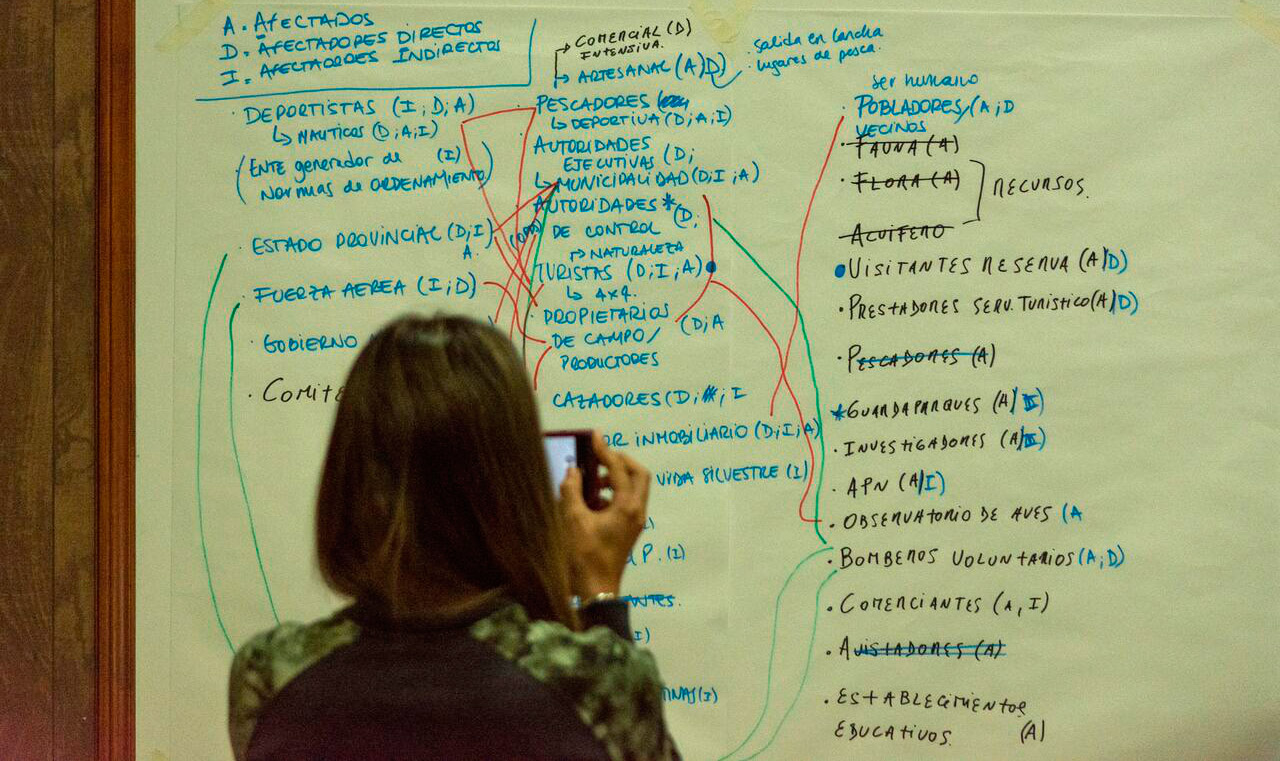 A. AfECTADOS
D. AFECTADORES DIRECTOS
I. AFECTADORES INDIRECTOS
DEPORTISTAS (I; D; A)
↳ NAUTICOS (D; A; I)
(ENTE generador de (I)
Normas de ORDENAMIENTO)
ESTADO PROVINCIAL (D; I)
A.
FUERZA AEREA (I; D)
GOBIERNO
COMERCIAL (D)
INTENSIVA.
ARTESANAL (A)D)
· Salida en lancha
· lugares de pesca.
PESCADORES
↳ DEPORTIVA (D; A; I)
AUTORIDADES
EJECUTIVAS (D;
↳ MUNICIPALIDAD (D; I; A)
AUTORIDADES *
DE CONTROL (D;
NATURALEZA
TURISTAS (D; I; A)
↳ 4x4.
PROPIETARIOS
DE CAMPO/ (D; A
PRODUCTORES
CAZADORES (D; A; I
INMOBILIARIO (D; I; A)
VIDA SILVESTRE (I)
P. (I)
(I)
ser humano
· POBLADORES/ (A; D
VECINOS
· FAUNA (A)
· FLORA (A)
RECURSOS.
ACUIFERO
VISITANTES RESERVA (A/D)
· PRESTADORES SERV. TURISTICO (A/D)
· PESCADORES (A)
*GUARDAPARQUES (A/I)
· INVESTIGADORES (A/I)
· APN (A/I)
· OBSERVATORIO DE AVES (A
· BOMBEROS VOLUNTARIOS (A; D)
· COMERCIANTES (A, I)
· AVISTADORES (A)
· ESTABLECIMIENTOS
EDUCATIVOS. (A)